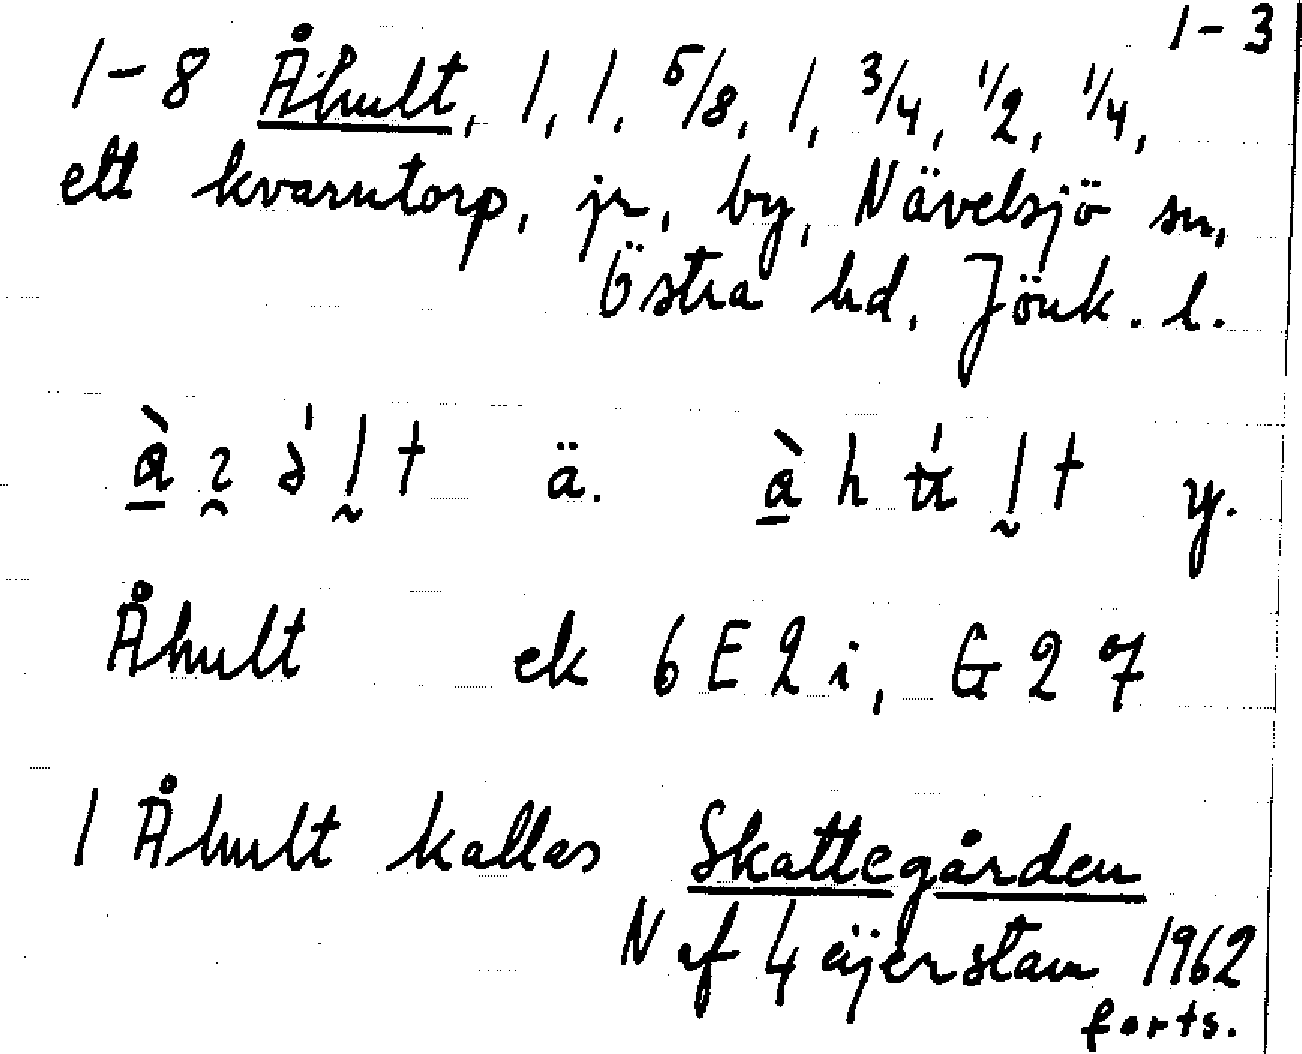 1-3
1-8 Åhult, 1, 1, 5/8, 1, 3/4, 1/2, 1/4,
ett kvarntorp, jr, by, Nävelsjö sn,
Östra hd, Jönk. l.
ä. y.
Åhult ek 6E2i, G27
1 Åhult kallas Skattegården
N af 4 äjerstam 1962
forts.